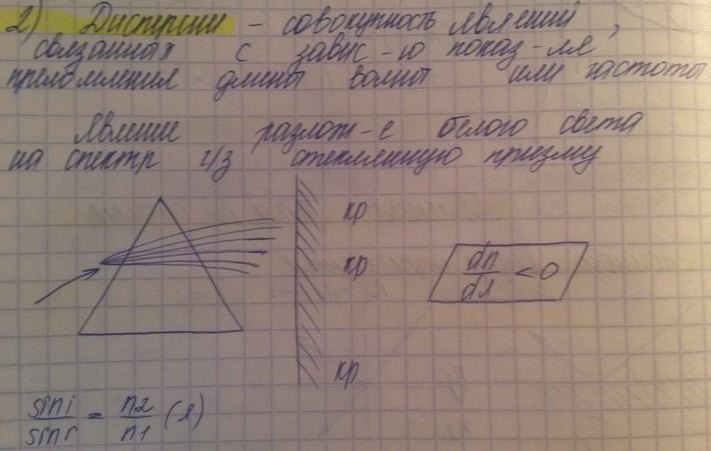 2) Дисперсия – совокупность явлений,
связанных с завис-ю показ-ля
преломления длины волны или частоты
Явление разлож-е белого света
на спектр ч/з стеклянную призму
кр
кр
dn/dλ < 0
кр
sin i / sin r = n2 / n1 (λ)